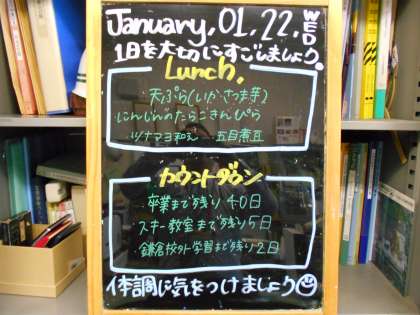 January, 01, 22, WED
1日を大切にすごしましょう。
Lunch,
・天ぷら(いか、さつま芋)
・にんじんのたらこきんぴら
・ツナマヨ和え ・五目煮豆
カウントダウン
・卒業まで残り 40日
・スキー教室まで残り5日
・鎌倉校外学習まで残り2日
体調に気をつけましょう